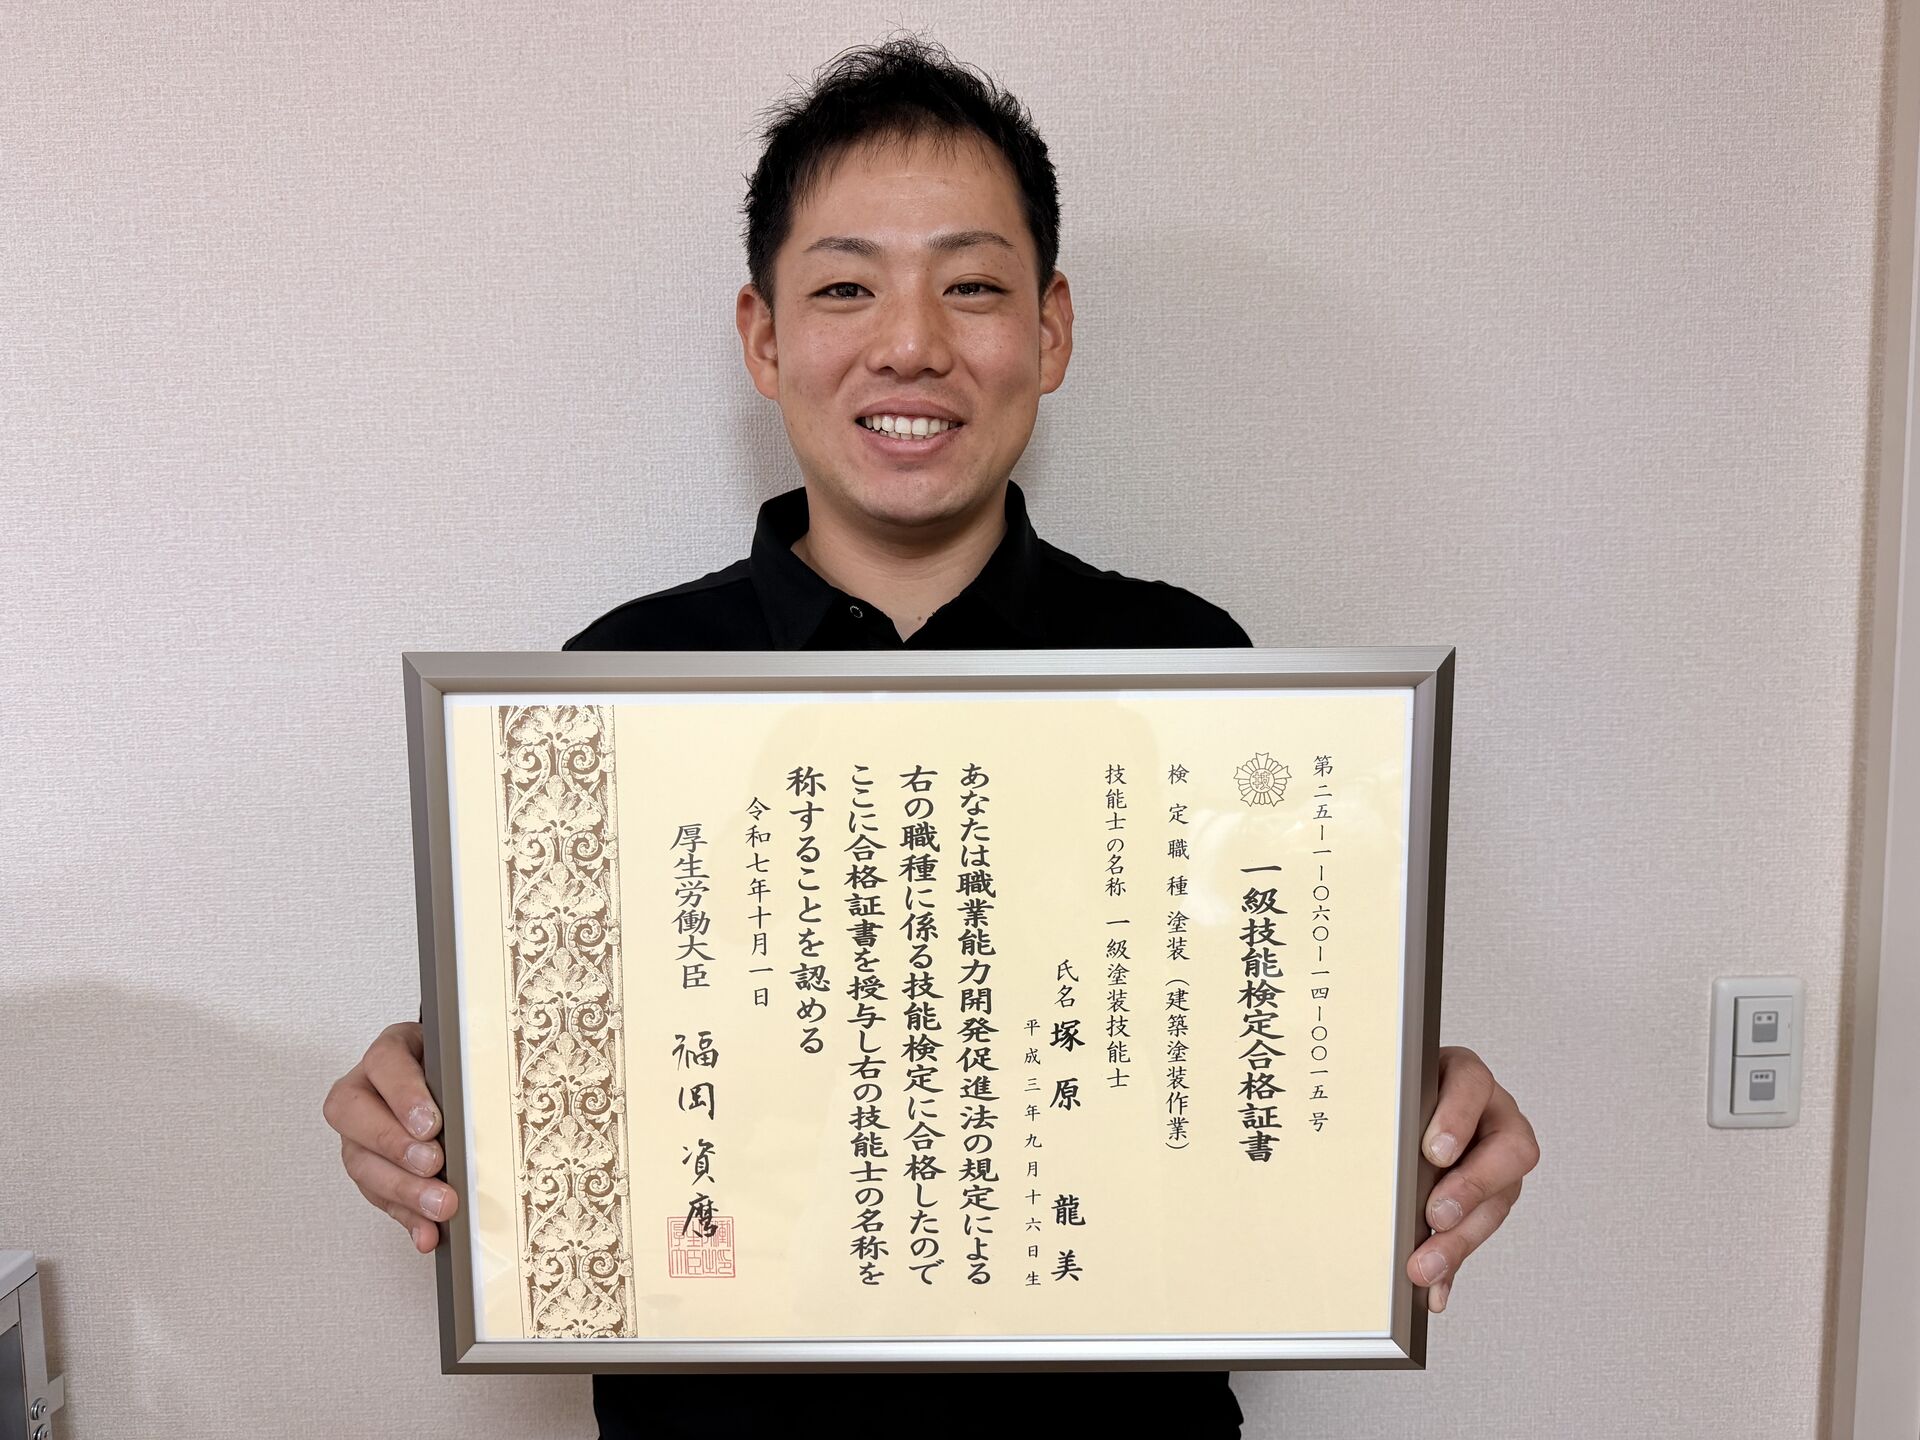 第二五ー一ー〇六六〇ー一四ー〇〇一五号
一級技能検定合格証書
検定職種 塗装（建築塗装作業）
技能士の名称 一級塗装技能士
氏名 塚原 龍美
平成三年九月十六日生
あなたは職業能力開発促進法の規定による
右の職種に係る技能検定に合格したので
ここに合格証書を授与し右の技能士の名称を
称することを認める
令和七年十月一日
厚生労働大臣 福岡資麿